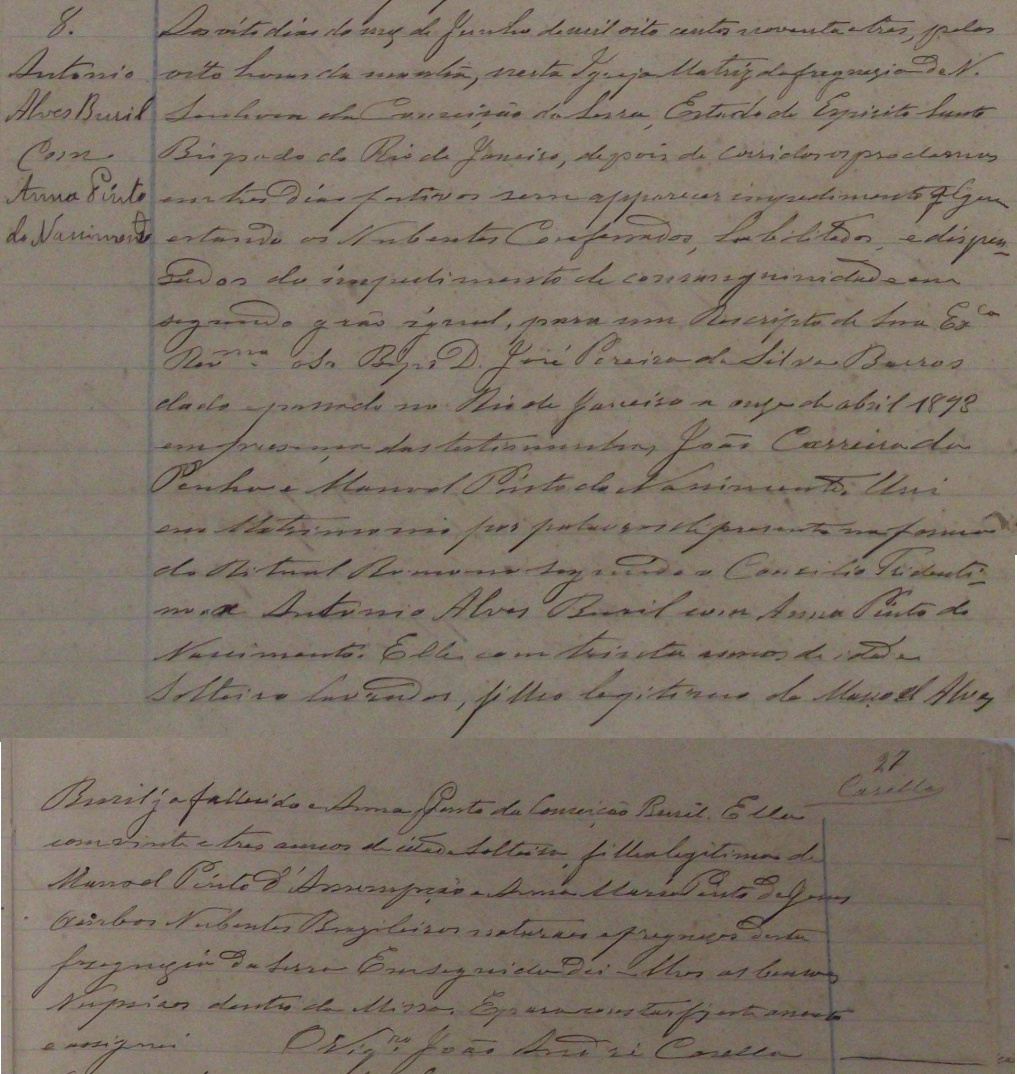 8.
Antonio
Alves Buril
Com
Anna Pinto
do Nascimento
Aos oito dias do mez de Junho de mil oito centos noventa e tres, pelas
oito horas da manhã, nesta Igreja Matriz da freguezia de N.
Senhora da Conceição da Serra, Estado do Espirito Santo
Bispado do Rio de Janeiro, depois de corridos os proclamas
em tres dias festivos sem apparecer impedimento algum
estando os Nubentes Confessados, habilitados, e dispen-
sados do impedimento de consanguinidade em
segundo gráo igual, para um Rescripto de Sua Exca
Revma o Sr Bispo D. José Pereira da Silva Barros
dado e passado no Rio de Janeiro a onze de abril 1893
em presença das testimunhas, João Carreira da
Penha e Manoel Pinto do Nascimento. Uni
em Matrimonio por palavras de presente na forma
do Ritual Romano segundo o Concilio Tridenti-
no a Antonio Alves Buril com Anna Pinto do
Nascimento. Elle com trinta annos de idade
Solteiro lavrador, filho legitimo de Manoel Alves
27
Casella
Buril já fallecido e Anna Pinto da Conceição Buril. Ella
com vinte e tres annos de idade Solteira, filha legitima de
Manoel Pinto d'Assumpção e Anna Maria Pinto de Jesus
Ambos Nubentes Brazileiros naturaes e freguezes desta
freguezia da Serra Em seguida dei-lhes as bençoes
Nupciaes dentro da Missa. E para constar fiz este assento
e assignei O Vigro João André Casella